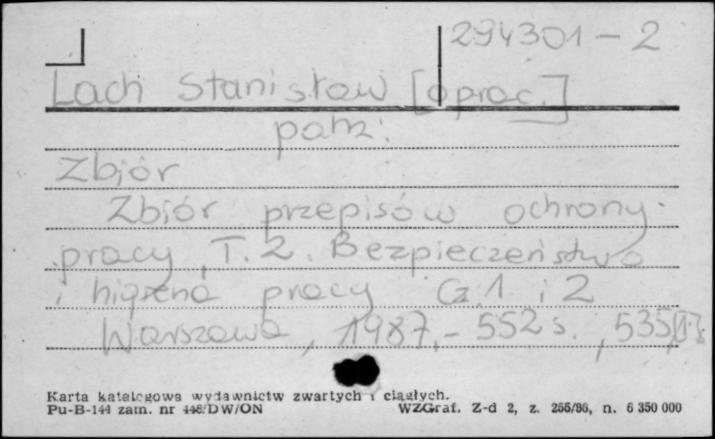 294301-2
Lach Stanisław [oprac.]
patrz:
Zbiór
Zbiór przepisów ochrony
pracy, T. 2. Bezpieczeństwo
i higiena pracy Cz. 1 i 2
Warszawa, 1987.- 552 s., 535,[1] s.
Karta katalogowa wydawnictw zwartych i ciągłych.
Pu-B-144 zam. nr 448/DW/ON WZGraf. Z-d 2, z. 266/86, n. 6 350 000